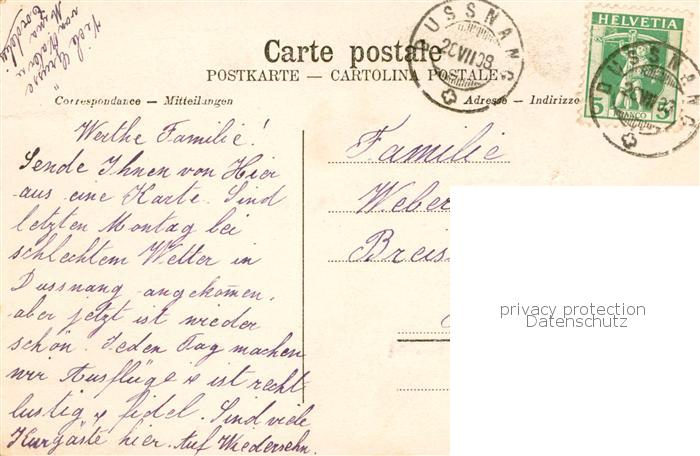 Viele Grüsse
von
Carte postale
POSTKARTE — CARTOLINA POSTALE
Correspondance — Mitteilungen
Adresse — Indirizzo
HELVETIA
5
5
FRANCO
DUSSNANG
20 VII 08
DUSSNANG
Werthe Familie!
Sende Ihnen von Hier
aus eine Karte. Sind
letzten Montag bei
schlechtem Wetter in
Dussnang angekomen,
aber jetzt ist wieder
schön. Jeden Tag machen
wir Ausflüge & ist recht
lustig & fidel. Sind viele
Kurgäste hier. Auf Wiedersehn.
Familie
Weber
Breis
privacy protection
Datenschutz